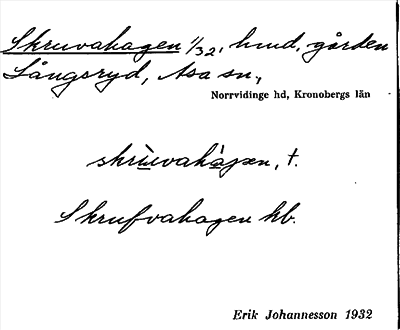 Skruvahagen 1/32, hmd, gården
Långsryd, Asa sn,
Norrvidinge hd, Kronobergs län
skrùvahàgen, t.
Skrufvahagen kb.
Erik Johannesson 1932